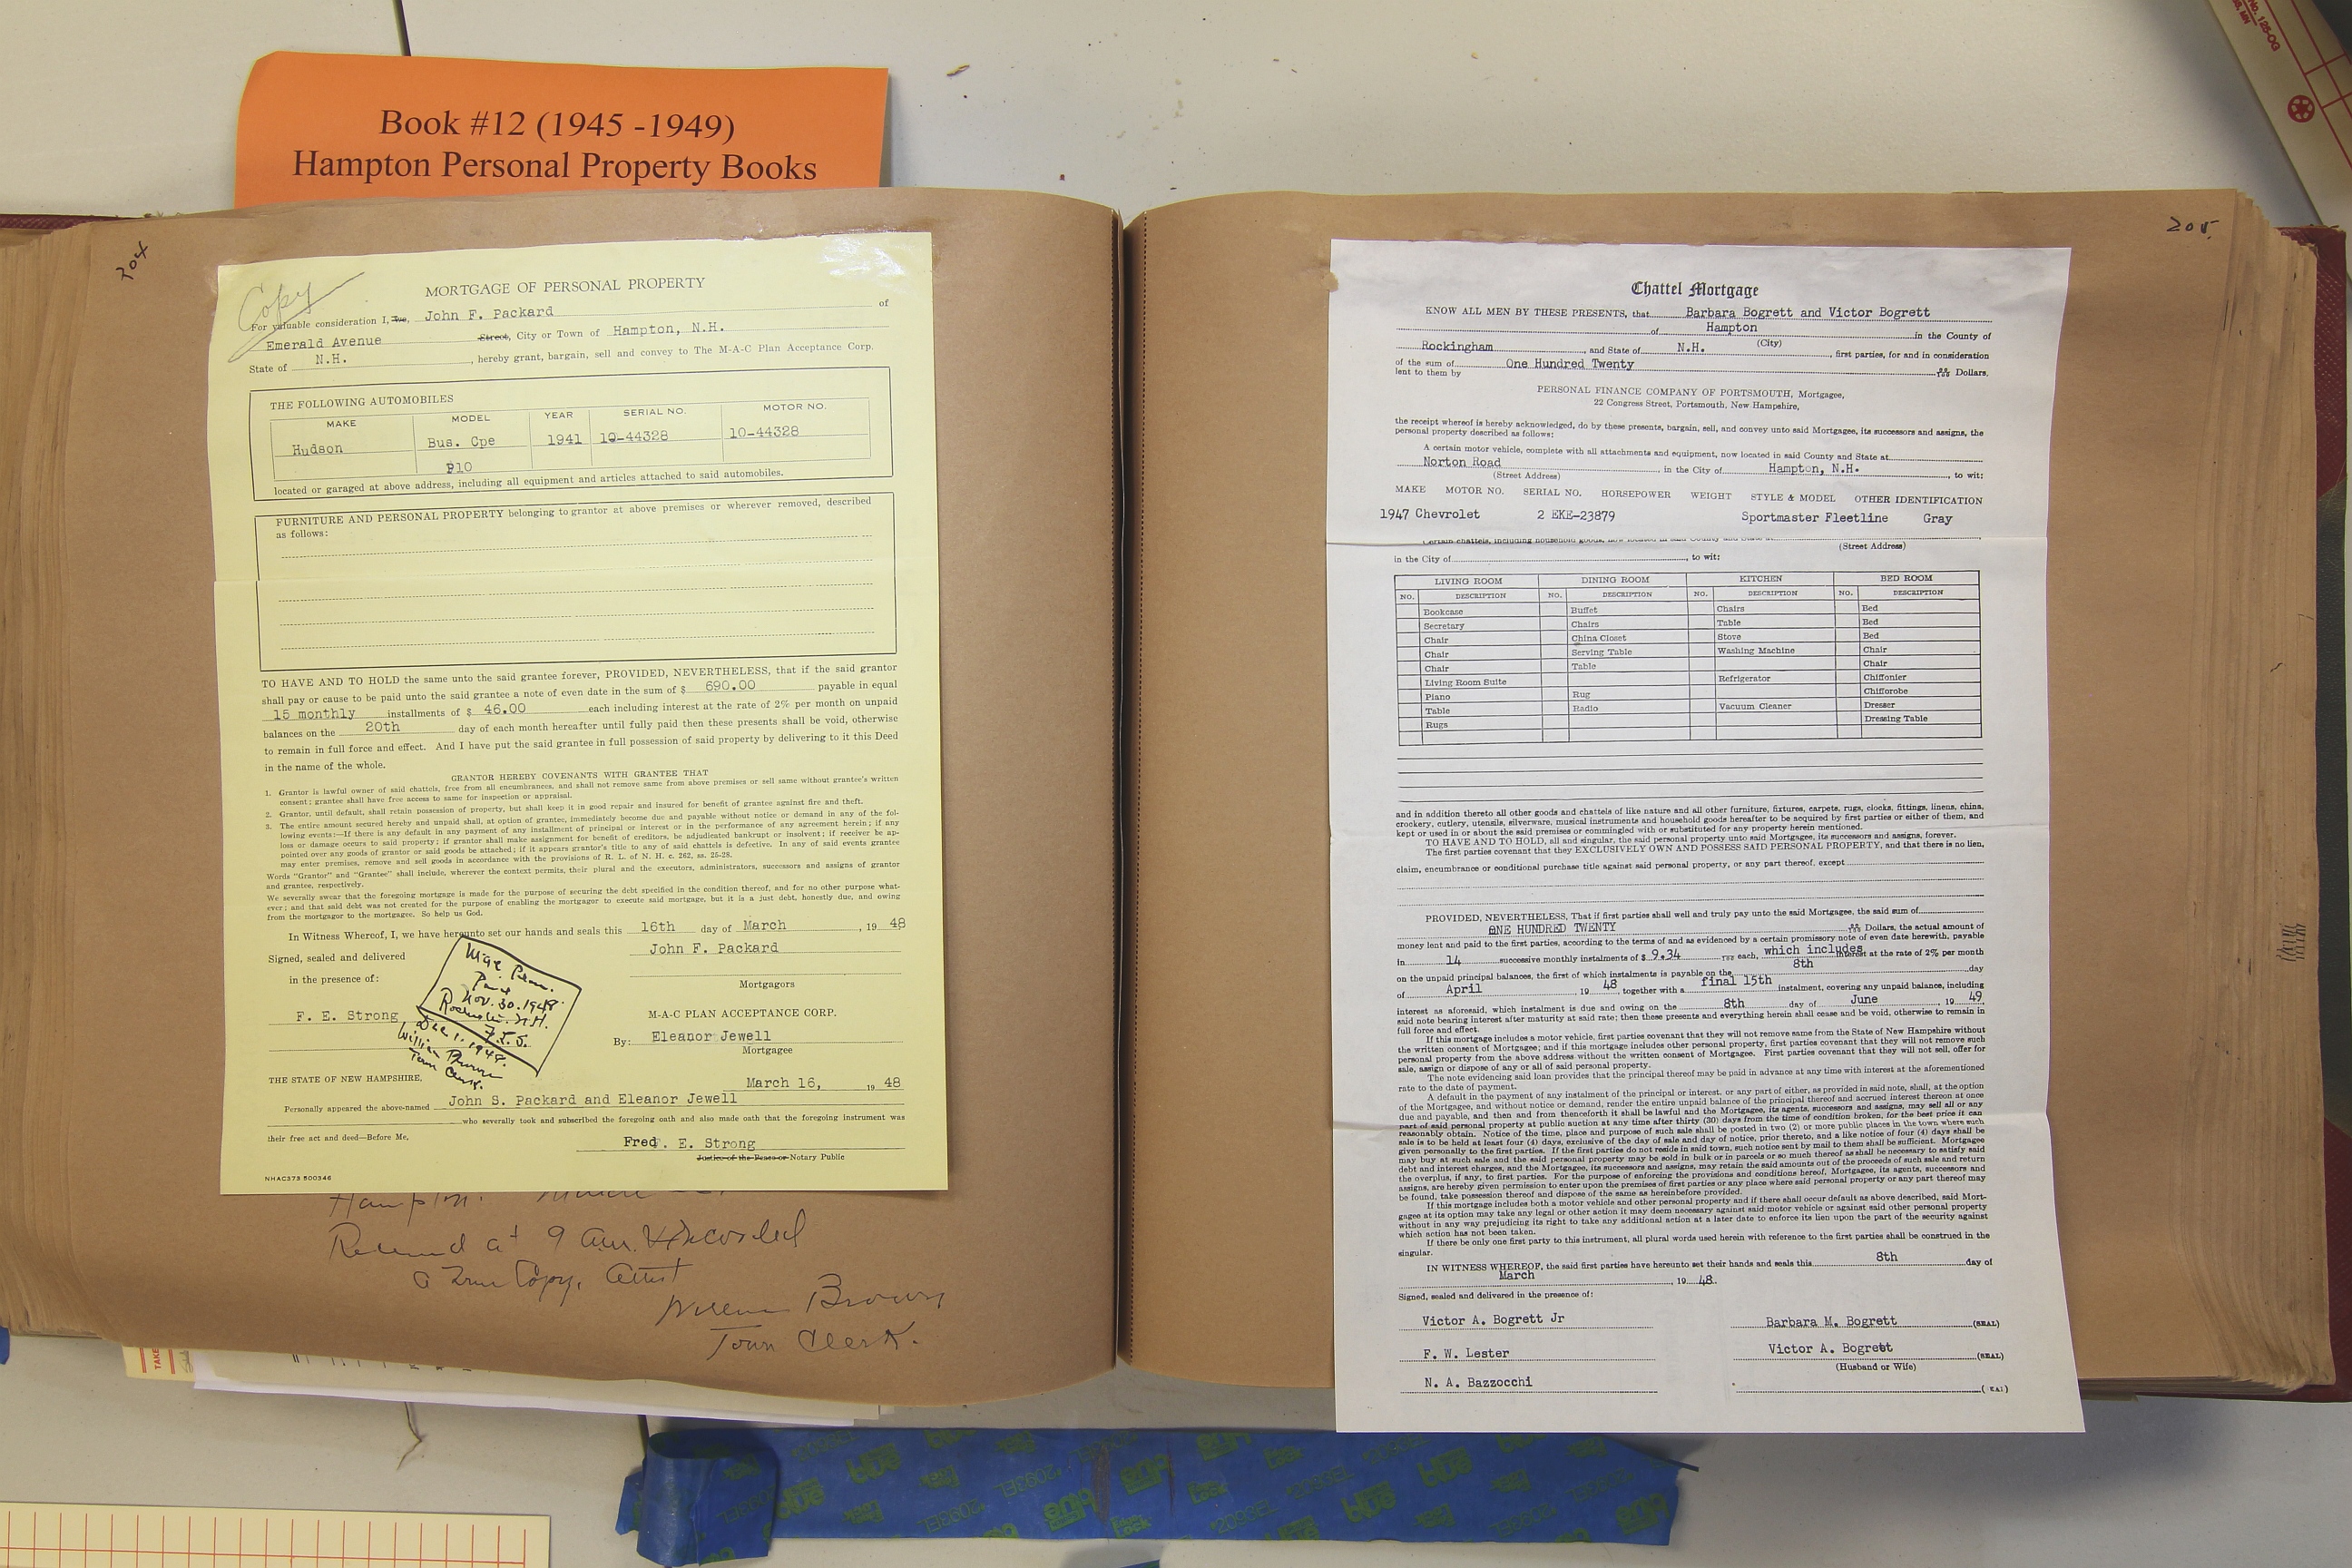 Book #12 (1945 -1949)
Hampton Personal Property Books
204
Copy
MORTGAGE OF PERSONAL PROPERTY
For valuable consideration I, We, John F. Packard of
Emerald Avenue Street, City or Town of Hampton, N.H.
State of N.H., hereby grant, bargain, sell and convey to The M-A-C Plan Acceptance Corp.
THE FOLLOWING AUTOMOBILES
MAKE MODEL YEAR SERIAL NO. MOTOR NO.
Hudson Bus. Cpe 1941 10-44328 10-44328
P10
located or garaged at above address, including all equipment and articles attached to said automobiles.
FURNITURE AND PERSONAL PROPERTY belonging to grantor at above premises or wherever removed, described
as follows:
TO HAVE AND TO HOLD the same unto the said grantee forever, PROVIDED, NEVERTHELESS, that if the said grantor
shall pay or cause to be paid unto the said grantee a note of even date in the sum of $ 690.00 payable in equal
15 monthly installments of $ 46.00 each including interest at the rate of 2% per month on unpaid
balances on the 20th day of each month hereafter until fully paid then these presents shall be void, otherwise
to remain in full force and effect. And I have put the said grantee in full possession of said property by delivering to it this Deed
in the name of the whole.
GRANTOR HEREBY COVENANTS WITH GRANTEE THAT
1. Grantor is lawful owner of said chattels, free from all encumbrances, and shall not remove same from above premises or sell same without grantee's written
consent; grantee shall have free access to same for inspection or appraisal.
2. Grantor, until default, shall retain possession of property, but shall keep it in good repair and insured for benefit of grantee against fire and theft.
3. The entire amount secured hereby and unpaid shall, at option of grantee, immediately become due and payable without notice or demand in any of the fol-
lowing events:—If there is any default in any payment of any installment of principal or interest or in the performance of any agreement herein; if any
loss or damage occurs to said property; if grantor shall make assignment for benefit of creditors, be adjudicated bankrupt or insolvent; if receiver be ap-
pointed over any goods of grantor or said goods be attached; if it appears grantor's title to any of said chattels is defective. In any of said events grantee
may enter premises, remove and sell goods in accordance with the provisions of R. L. of N. H. c. 262, ss. 25-28.
Words "Grantor" and "Grantee" shall include, wherever the context permits, their plural and the executors, administrators, successors and assigns of grantor
and grantee, respectively.
We severally swear that the foregoing mortgage is made for the purpose of securing the debt specified in the condition thereof, and for no other purpose what-
ever; and that said debt was not created for the purpose of enabling the mortgagor to execute said mortgage, but it is a just debt, honestly due, and owing
from the mortgagor to the mortgagee. So help us God.
In Witness Whereof, I, we have hereunto set our hands and seals this 16th day of March, 19 48
Signed, sealed and delivered John F. Packard
in the presence of:
Mortgagors
F. E. Strong M-A-C PLAN ACCEPTANCE CORP.
By: Eleanor Jewell
Mortgagee
Paid
Nov. 30. 1948.
F.E.S.
Dec. 1. 1948.
William Brown
Town Clerk.
THE STATE OF NEW HAMPSHIRE, March 16, 19 48
Personally appeared the above-named John S. Packard and Eleanor Jewell
who severally took and subscribed the foregoing oath and also made oath that the foregoing instrument was
their free act and deed—Before Me,
Fred. E. Strong
Justice of the Peace or Notary Public
NHAC373 500346
Hampton.
Received at 9 a.m. & Recorded
a True Copy, Attest
William Brown
Town Clerk.
205.
Chattel Mortgage
KNOW ALL MEN BY THESE PRESENTS, that Barbara Bogrett and Victor Bogrett
of Hampton in the County of
(City)
Rockingham, and State of N.H., first parties, for and in consideration
of the sum of One Hundred Twenty Dollars,
lent to them by
PERSONAL FINANCE COMPANY OF PORTSMOUTH, Mortgagee,
22 Congress Street, Portsmouth, New Hampshire,
the receipt whereof is hereby acknowledged, do by these presents, bargain, sell, and convey unto said Mortgagee, its successors and assigns, the
personal property described as follows:
A certain motor vehicle, complete with all attachments and equipment, now located in said County and State at
Norton Road, in the City of Hampton, N.H., to wit:
(Street Address)
MAKE MOTOR NO. SERIAL NO. HORSEPOWER WEIGHT STYLE & MODEL OTHER IDENTIFICATION
1947 Chevrolet 2 EKE-23879 Sportmaster Fleetline Gray
Certain chattels, including household goods, now located in said County and State at
(Street Address)
in the City of, to wit:
LIVING ROOM DINING ROOM KITCHEN BED ROOM
NO. DESCRIPTION NO. DESCRIPTION NO. DESCRIPTION NO. DESCRIPTION
Bookcase Buffet Chairs Bed
Secretary Chairs Table Bed
Chair China Closet Stove Bed
Chair Serving Table Washing Machine Chair
Chair Table Chair
Living Room Suite Refrigerator Chiffonier
Piano Rug Chifforobe
Table Radio Vacuum Cleaner Dresser
Rugs Dressing Table
and in addition thereto all other goods and chattels of like nature and all other furniture, fixtures, carpets, rugs, clocks, fittings, linens, china,
crockery, cutlery, utensils, silverware, musical instruments and household goods hereafter to be acquired by first parties or either of them, and
kept or used in or about the said premises or commingled with or substituted for any property herein mentioned.
TO HAVE AND TO HOLD, all and singular, the said personal property unto said Mortgagee, its successors and assigns, forever.
The first parties covenant that they EXCLUSIVELY OWN AND POSSESS SAID PERSONAL PROPERTY, and that there is no lien,
claim, encumbrance or conditional purchase title against said personal property, or any part thereof, except
PROVIDED, NEVERTHELESS, That if first parties shall well and truly pay unto the said Mortgagee, the said sum of
ONE HUNDRED TWENTY Dollars, the actual amount of
money lent and paid to the first parties, according to the terms of and as evidenced by a certain promissory note of even date herewith, payable
in 14 successive monthly instalments of $ 9.34 each, which includes interest at the rate of 2% per month
on the unpaid principal balances, the first of which instalments is payable on the 8th day
of April, 19 48, together with a final 15th instalment, covering any unpaid balance, including
interest as aforesaid, which instalment is due and owing on the 8th day of June, 19 49,
said note bearing interest after maturity at said rate; then these presents and everything herein shall cease and be void, otherwise to remain in
full force and effect.
If this mortgage includes a motor vehicle, first parties covenant that they will not remove same from the State of New Hampshire without
the written consent of Mortgagee; and if this mortgage includes other personal property, first parties covenant that they will not remove such
personal property from the above address without the written consent of Mortgagee. First parties covenant that they will not sell, offer for
sale, assign or dispose of any or all of said personal property.
The note evidencing said loan provides that the principal thereof may be paid in advance at any time with interest at the aforementioned
rate to the date of payment.
A default in the payment of any instalment of the principal or interest, or any part of either, as provided in said note, shall, at the option
of the Mortgagee, and without notice or demand, render the entire unpaid balance of the principal thereof and accrued interest thereon at once
due and payable, and then and from thenceforth it shall be lawful and the Mortgagee, its agents, successors and assigns, may sell all or any
part of said personal property at public auction at any time after thirty (30) days from the time of condition broken, for the best price it can
reasonably obtain. Notice of the time, place and purpose of such sale shall be posted in two (2) or more public places in the town where such
sale is to be held at least four (4) days, exclusive of the day of sale and day of notice, prior thereto, and a like notice of four (4) days shall be
given personally to the first parties. If the first parties do not reside in said town, such notice sent by mail to them shall be sufficient. Mortgagee
may buy at such sale and the said personal property may be sold in bulk or in parcels or so much thereof as shall be necessary to satisfy said
debt and interest charges, and the Mortgagee, its successors and assigns, may retain the said amounts out of the proceeds of such sale and return
the overplus, if any, to first parties. For the purpose of enforcing the provisions and conditions hereof, Mortgagee, its agents, successors and
assigns, are hereby given permission to enter upon the premises of first parties or any place where said personal property or any part thereof may
be found, take possession thereof and dispose of the same as hereinbefore provided.
If this mortgage includes both a motor vehicle and other personal property and if there shall occur default as above described, said Mort-
gagee at its option may take any legal or other action it may deem necessary against said motor vehicle or against said other personal property
without in any way prejudicing its right to take any additional action at a later date to enforce its lien upon the part of the security against
which action has not been taken.
If there be only one first party to this instrument, all plural words used herein with reference to the first parties shall be construed in the
singular.
IN WITNESS WHEREOF, the said first parties have hereunto set their hands and seals this 8th day of
March, 19 48.
Signed, sealed and delivered in the presence of:
Victor A. Bogrett Jr Barbara M. Bogrett (SEAL)
F. W. Lester Victor A. Bogrett (SEAL)
(Husband or Wife)
N. A. Bazzocchi